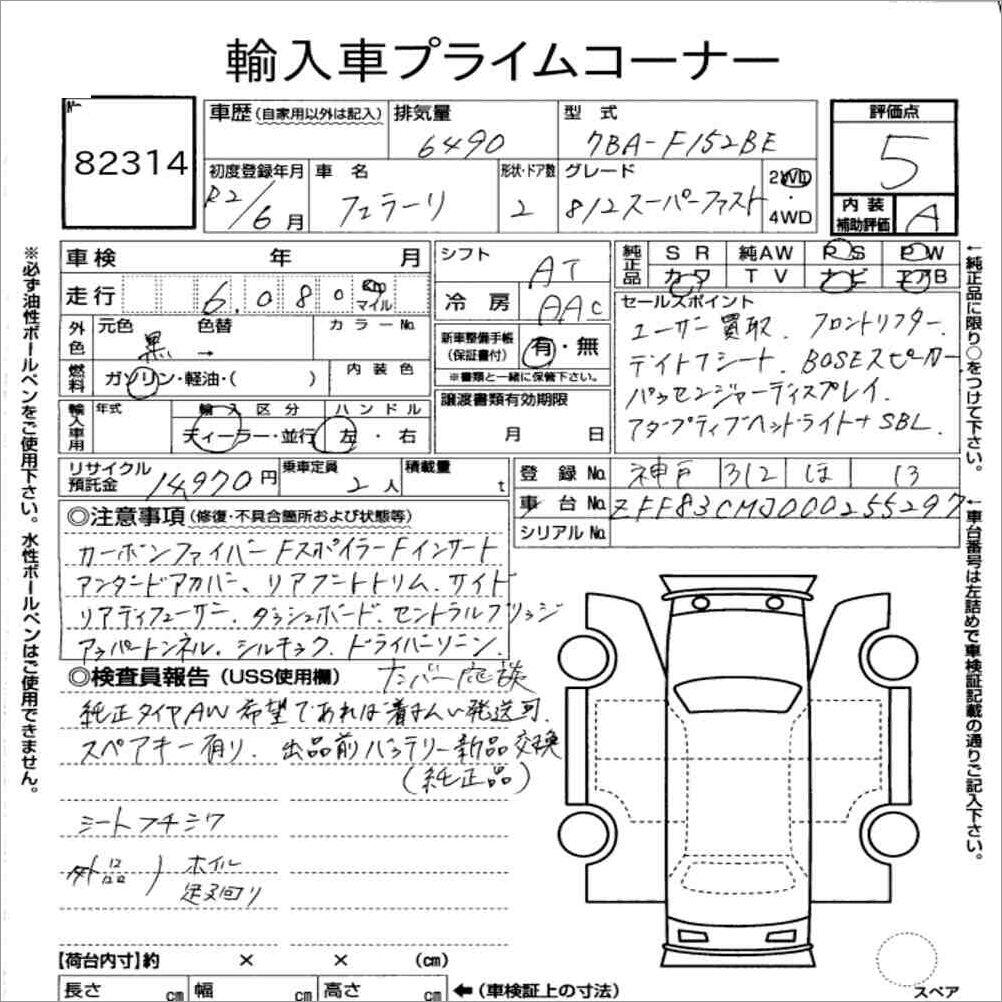 輸入車プライムコーナー
No.
82314
車歴 (自家用以外は記入) 排気量 型式 評価点
6490 7BA-F152BE 5
初度登録年月 車名 形状・ドア数 グレード 2WD ・ 4WD
R2/6月 フェラーリ 2 812スーパーファスト
内装補助評価 A
車検 年 月
走行 6.080 km マイル
外色 元色 色替 カラーNo.
黒 →
燃料 ガソリン・軽油・( ) 内装色
輸入車用 年式 輸入区分 ハンドル
ディーラー・並行 左・右
シフト AT
冷房 AAC
新車整備手帳(保証書付) 有・無
※書類と一緒に保管下さい。
譲渡書類有効期限
月 日
純正品 SR 純AW PS PW
カワ TV ナビ エアB
セールスポイント
ユーザー買取. フロントリフター.
デイトナシート. BOSEスピーカー
パッセンジャーディスプレイ.
アダプティブヘッドライト+SBL.
リサイクル預託金 14970円 乗車定員 2人 積載量 t
登録No. 神戸 312 ほ 13
車台No. ZFF83CMJ000255297
シリアルNo.
◎注意事項 (修復・不具合箇所および状態等)
カーボンファイバー Fスポイラー Fインサート
アンダードアカバー、リアフェンダートリム. サイド
リアディフューザー. ダッシュボード. セントラルブリッジ
アッパートンネル. シルキック. ドライバーゾーン.
◎検査員報告 (USS使用欄) ナンバー応談
純正タイヤAW希望であれば着払い発送可.
スペアキー有り. 出品前バッテリー新品交換
(純正品)
シートフチシワ
外品) ホイル
足又回り
【荷台内寸】約 × × (cm)
長さ cm 幅 cm 高さ cm ←(車検証上の寸法)
スペア
※必ず油性ボールペンをご使用下さい。水性ボールペンはご使用できません。
←純正品に限り○をつけて下さい。
←車台番号は左詰めで車検証記載の通りご記入下さい。